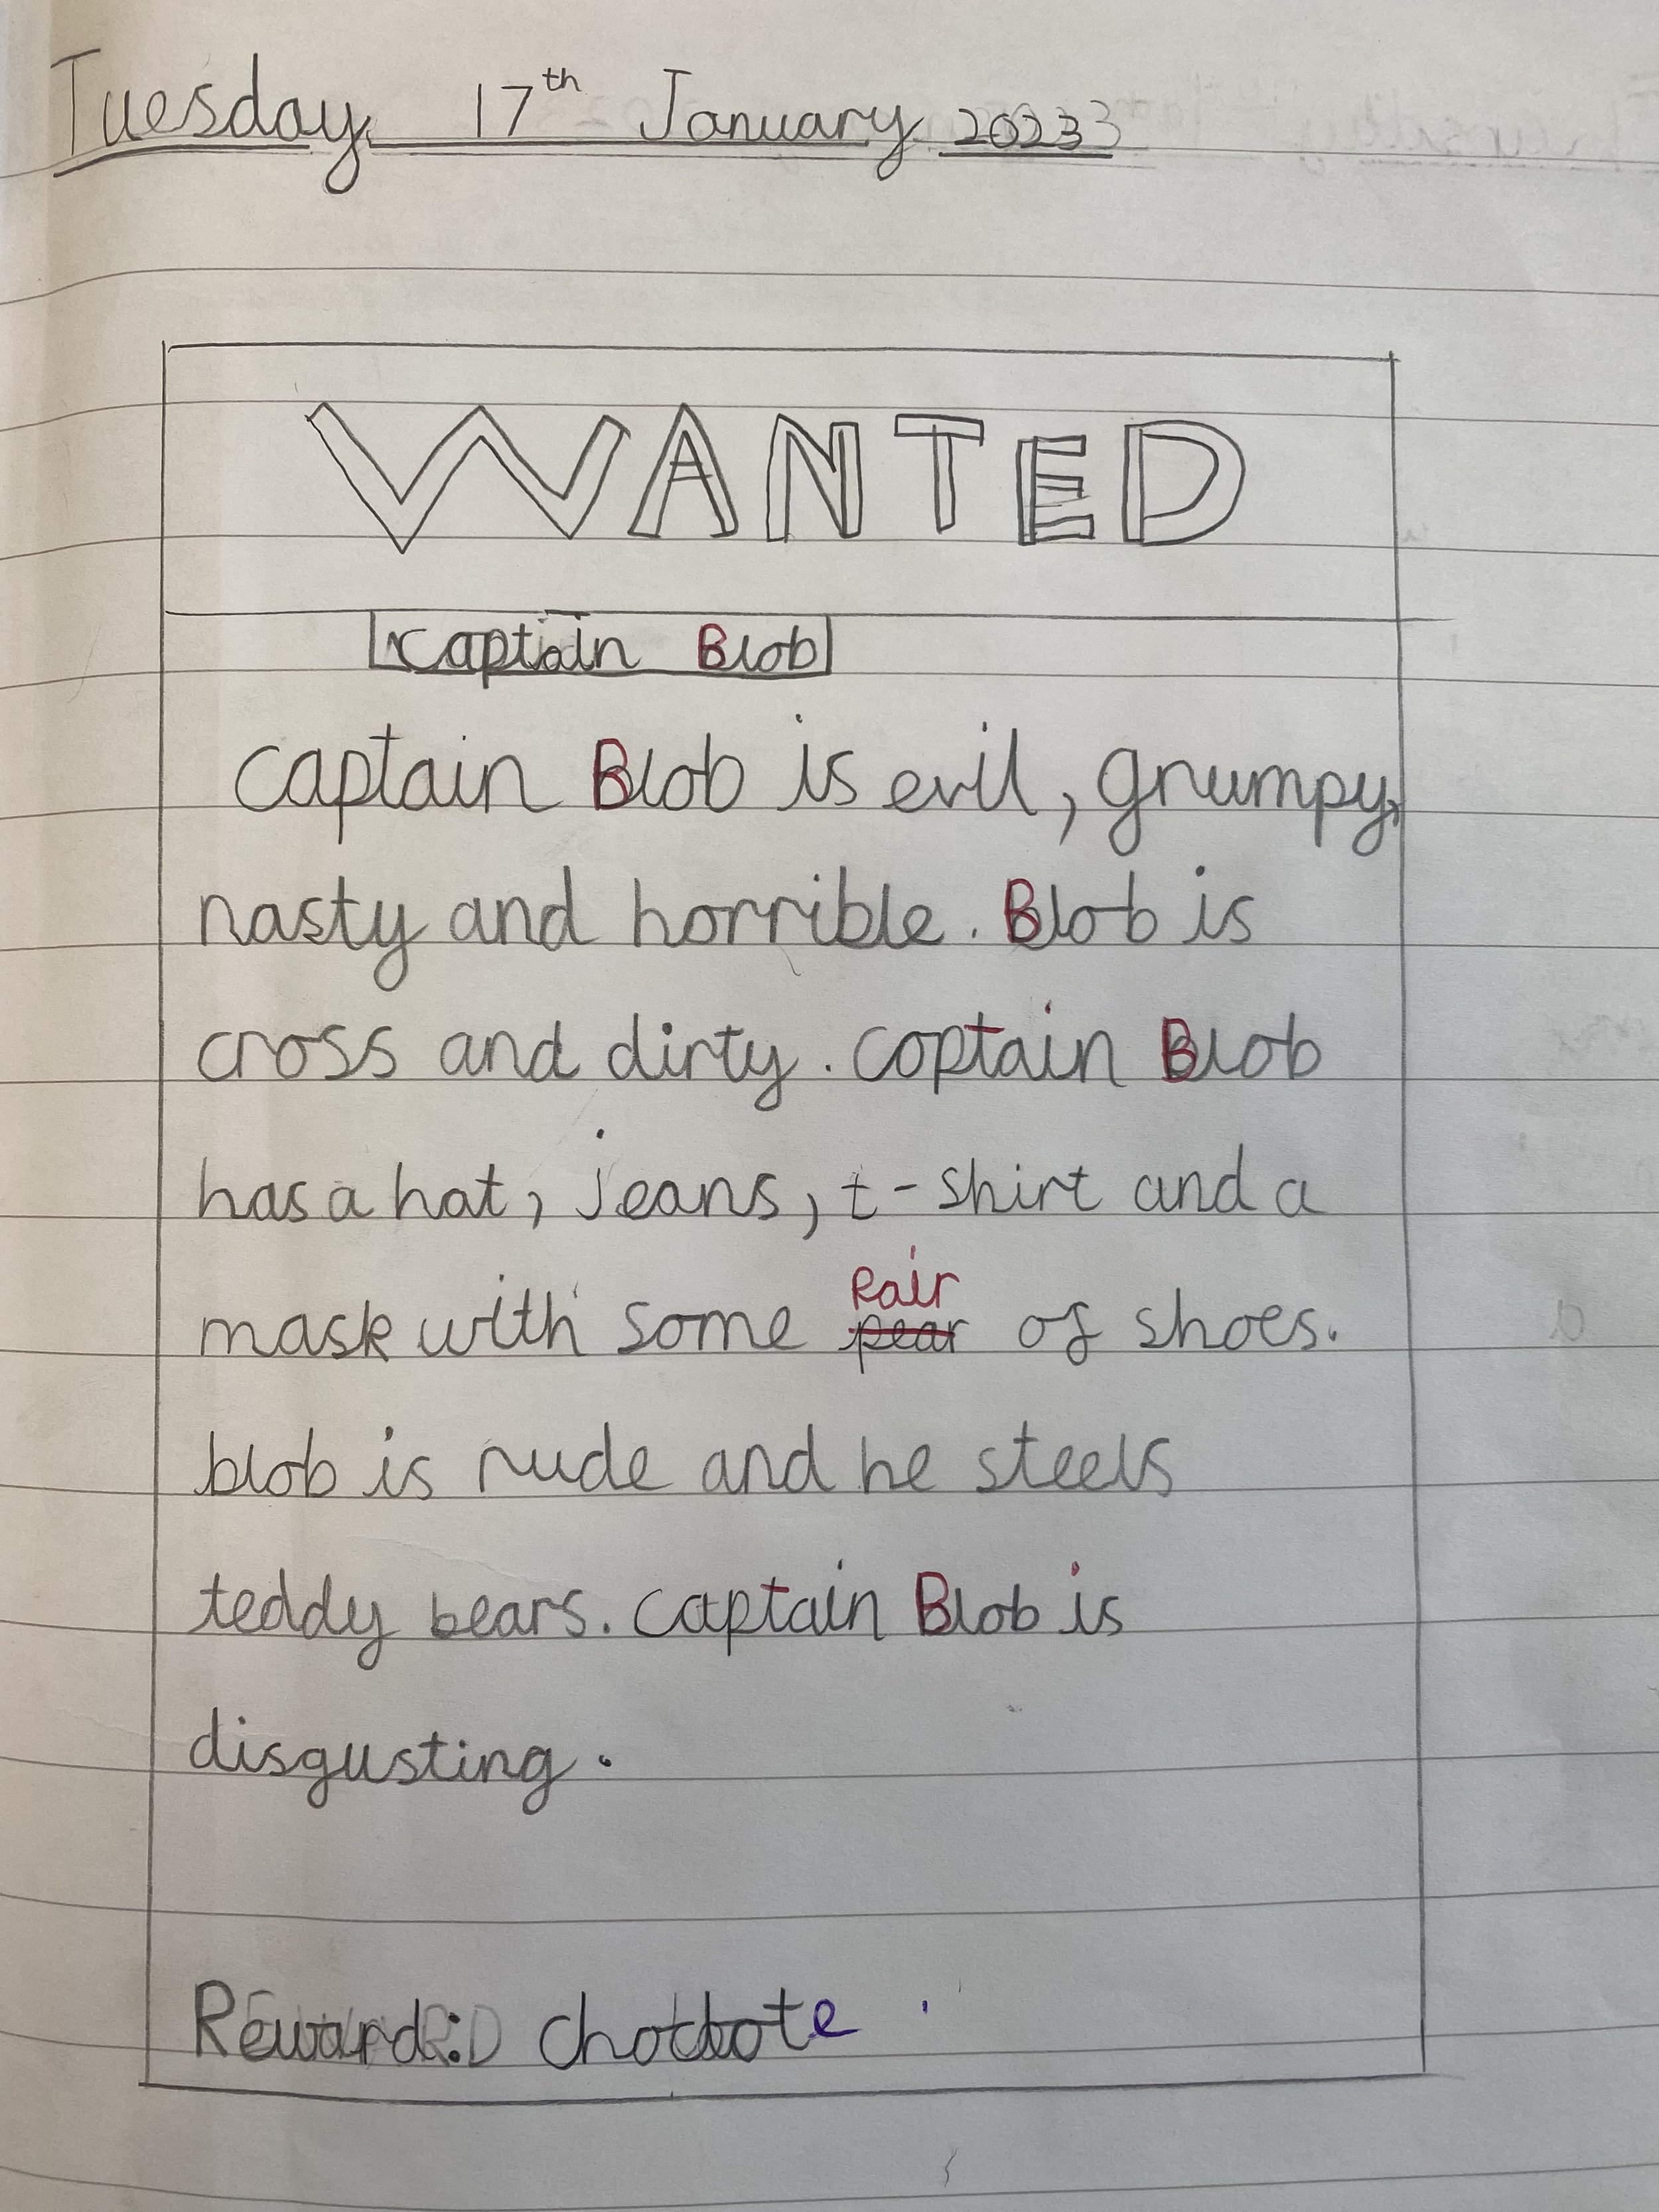 Tuesday, 17th January 2023
WANTED
Captain Blob
Captain Blob is evil, grumpy,
nasty and horrible. Blob is
cross and dirty. Captain Blob
has a hat, jeans, t-shirt and a
Pair
mask with some pear of shoes.
blob is rude and he steels
teddy bears. Captain Blob is
disgusting.
Reward: